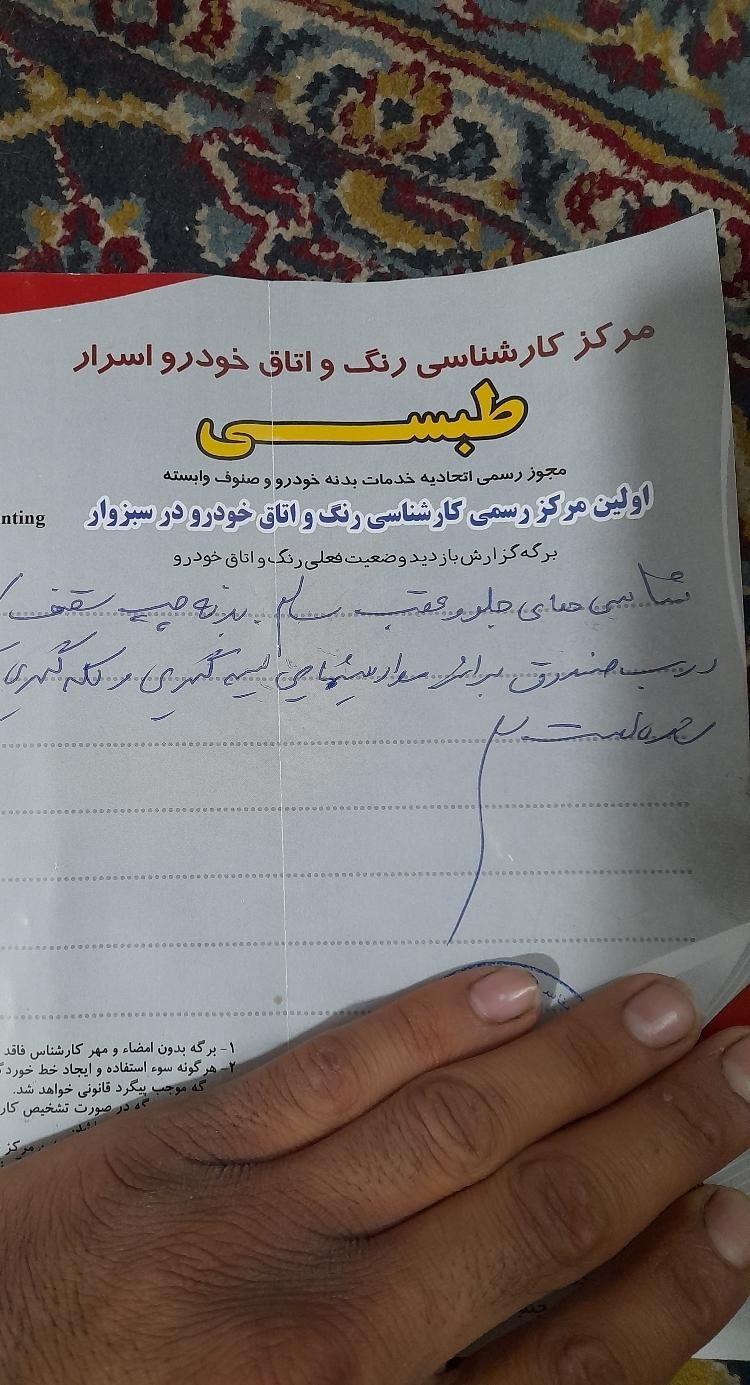 مرکز کارشناسی رنگ و اتاق خودرو اسرار
طبسی
مجوز رسمی اتحادیه خدمات بدنه خودرو و صنوف وابسته
اولین مرکز رسمی کارشناسی رنگ و اتاق خودرو در سبزوار
nting
برگه گزارش بازدید وضعیت فعلی رنگ و اتاق خودرو
شاسی های جلو و عقب سالم بدنه چپ سقف
درب صندوق براثر لیسه گیری و لکه گیری
شده است
۱- برگه بدون امضاء و مهر کارشناس فاقد
۲- هرگونه سوء استفاده و ایجاد خط خوردگ
گه موجب پیگرد قانونی خواهد شد.
گه در صورت تشخیص کار
باشد.
مرکز